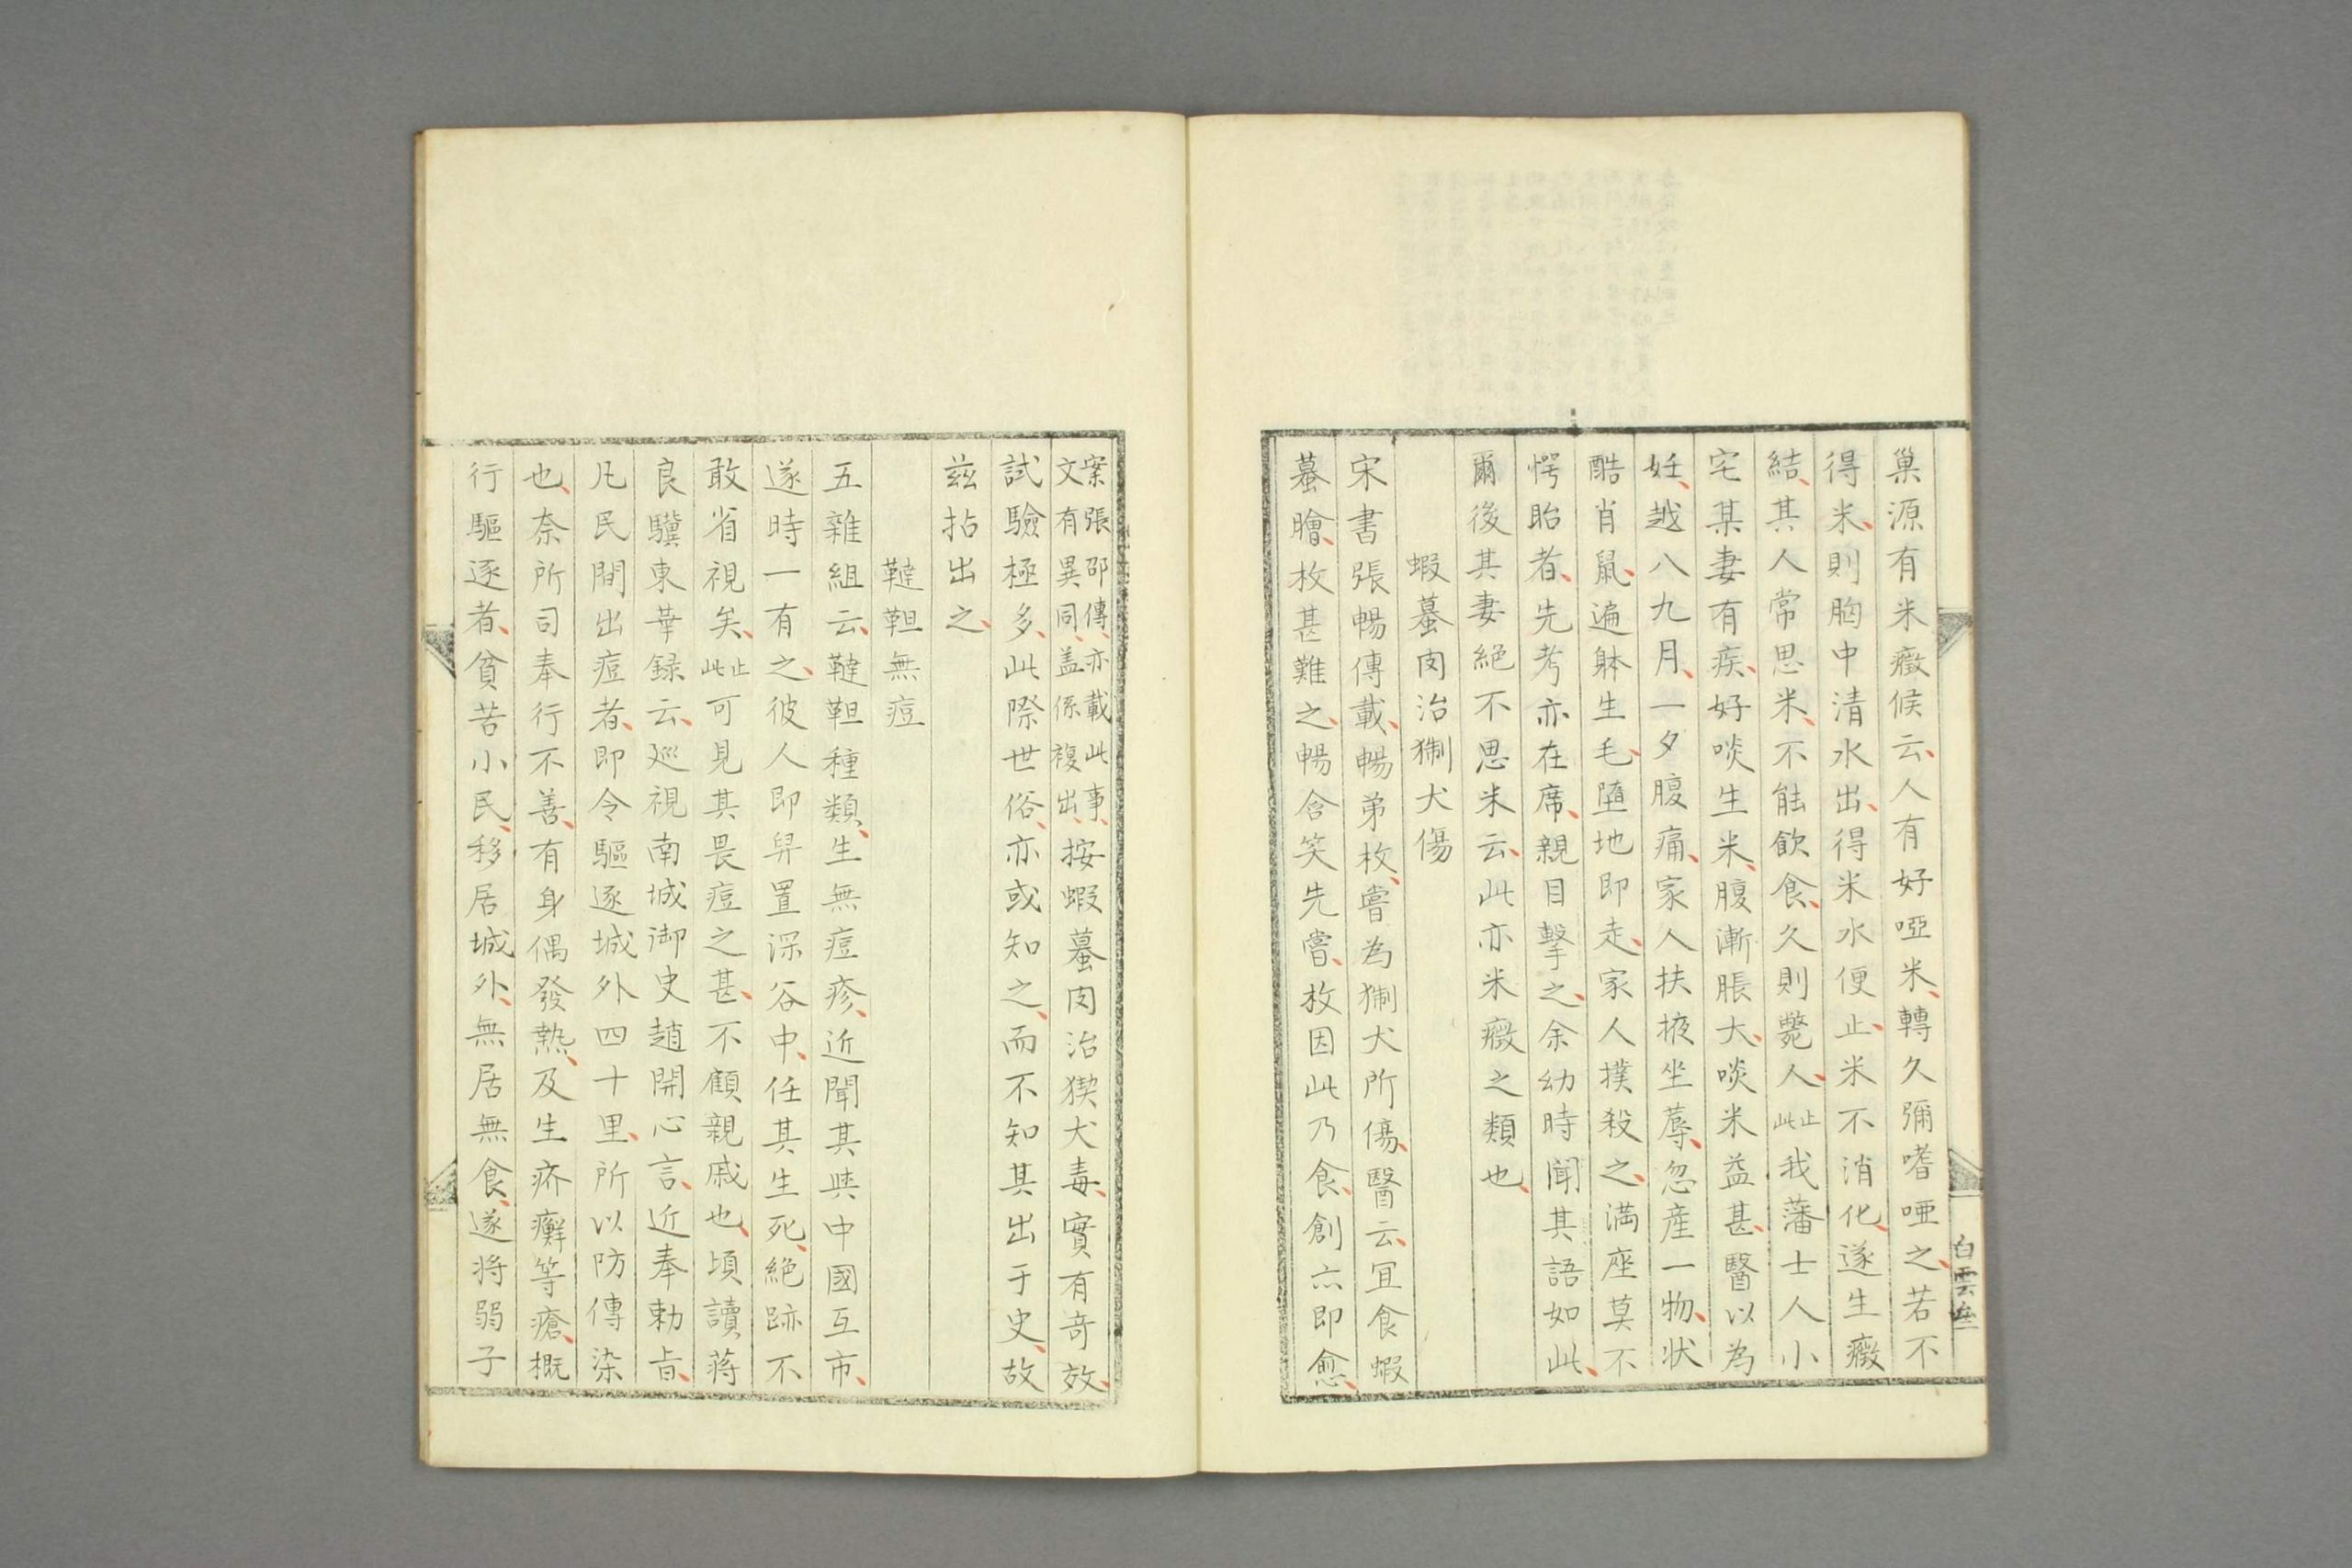 巢源有米癥候云、人有好啞米、轉久彌嗜啞之、若不
得米、則胸中清水出、得米水便止、米不消化、遂生癥
結、其人常思米、不能飲食、久則斃人、止此我藩士人小
宅某妻有疾、好啖生米、腹漸脹大、啖米益甚、醫以為
妊、越八九月、一夕腹痛、家人扶掖坐蓐、忽産一物、状
酷肖鼠、遍躰生毛、墮地即走、家人撲殺之、満座莫不
愕眙者、先考亦在席、親目擊之、余幼時聞其語如此、
爾後其妻絕不思米云、此亦米癥之類也、
蝦蟇肉治猘犬傷
宋書張暢傳載、暢弟枚、嘗為猘犬所傷、醫云、宜食蝦
蟇膾、枚甚難之、暢含笑先嘗、枚因此乃食、創亦即愈、
案張邵傳、亦載此事、
文有異同、盖係複出、按蝦蟇肉治猰犬毒、實有奇效、
試驗極多、此際世俗、亦或知之、而不知其出于史、故
兹拈出之、
韃靼無痘
五雜組云、韃靼種類、生無痘疹、近聞其與中國互市、
遂時一有之、彼人即舁置深谷中、任其生死、絕跡不
敢省視矣、止此可見其畏痘之甚、不顧親戚也、頃讀蒋
良驥東華録云、廵視南城御史趙開心言、近奉勅旨、
凡民間出痘者、即令驅逐城外四十里、所以防傳染
也、奈所司奉行不善、有身偶發熱、及生疥癬等瘡、概
行驅逐者、貧苦小民、移居城外、無居無食、遂将弱子
白雲叁